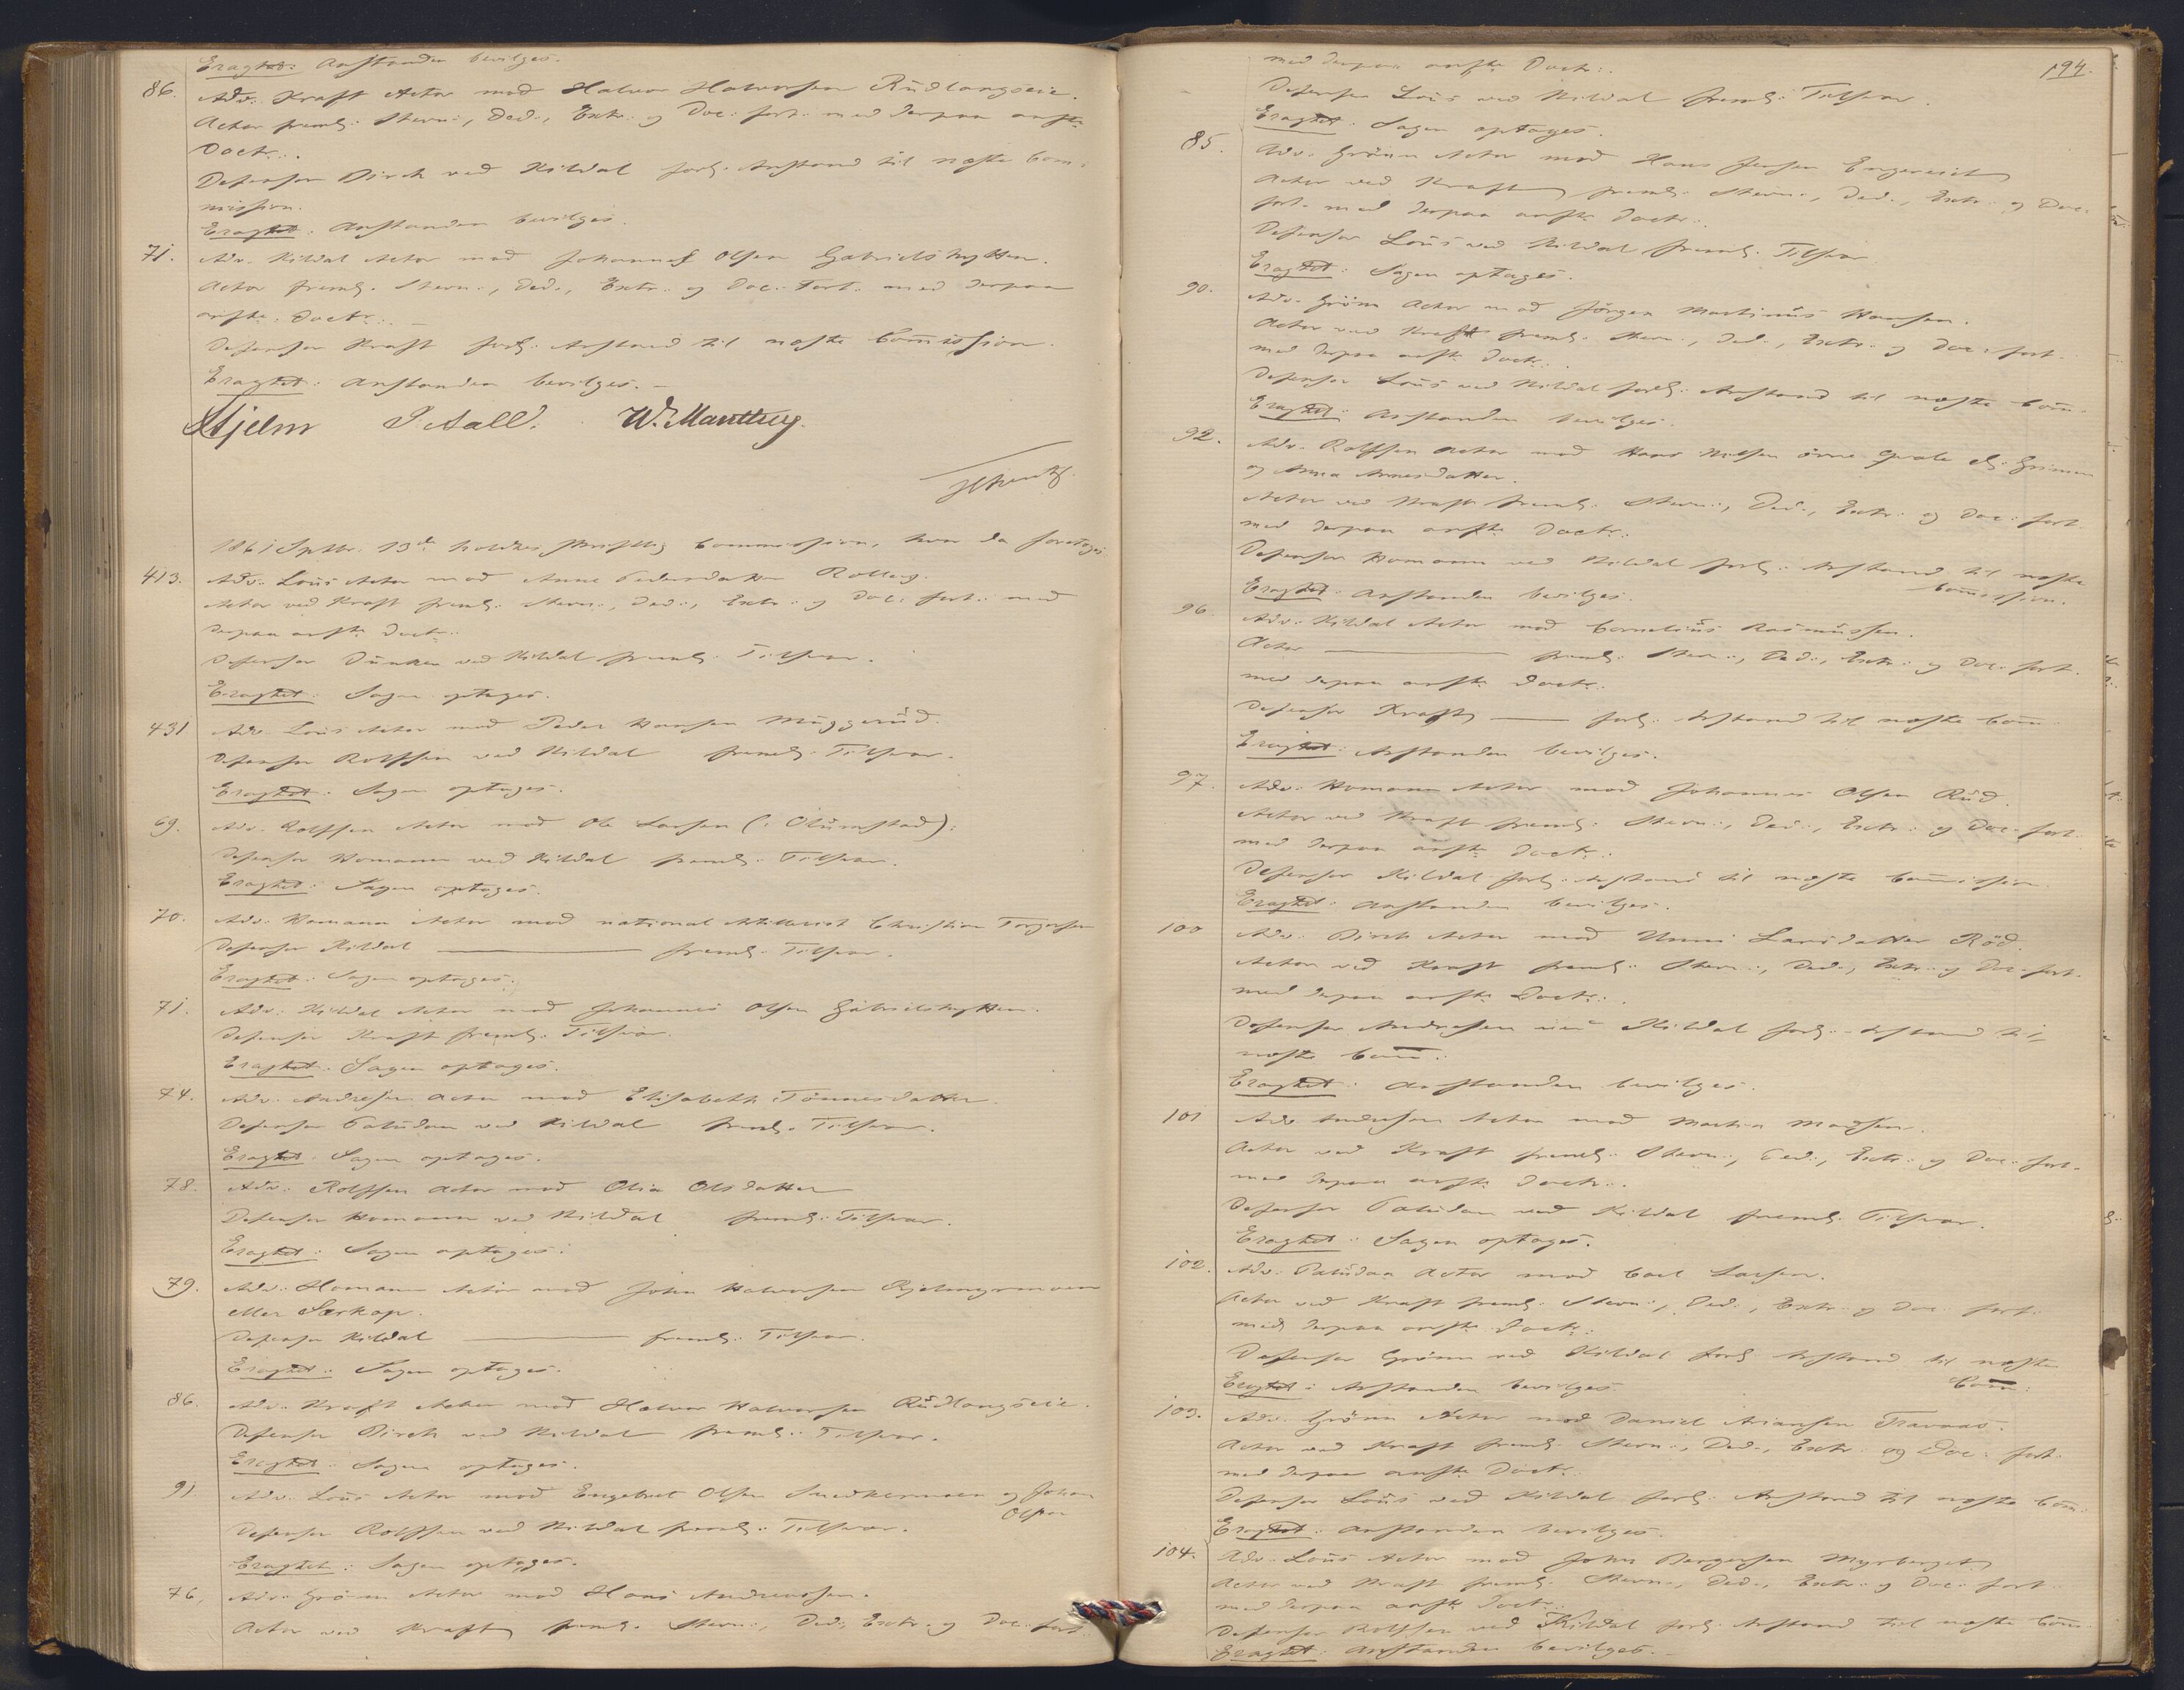 Eragtet: Anstanden bevilges.
86. Adv. Kraft Actor mod Halvor Halvorsen Rüdlangseie.
Actor freml. Stevn., Ded., Extr. og Doc. fort. med derpaa
Doctr.
Defensor Birch ved Kildal forl. Anstand til næste Com-
mission.
Eragtet: Anstanden bevilges.
71. Adv. Kildal Actor mod Johannes Olsen Gabrielshytten.
Actor freml. Stevn., Ded., Extr. og Doc. fort. med derpaa
Doctr.
Defensor Kraft forl. Anstand til næste Commission.
Eragtet: Anstanden bevilges.
Hjelm P Aall. W. Manthey.
1861 Septbr. 13de holdtes skriftlig Commission, hvor da foretoges
413. Adv. Loüs Actor mod Anne Pedersdatter
Actor ved Kraft freml. Stevn., Ded., Extr. og Doc. fort. med
derpaa Doctr.
Defensor Dünker ved Kildal freml. Tilsvar.
Eragtet: Sagen optages.
431 Adv. Loüs Actor mod Peder Hansen Müggerüd.
Defensor Rolfsen ved Kildal freml. Tilsvar.
Eragtet: Sagen optages.
69. Adv. Rolfsen Actor mod Ole Larsen
Defensor Homann ved Kildal freml. Tilsvar.
Eragtet: Sagen optages.
70. Adv. Homann Actor mod national Artillerist Christian Torgersen
Defensor Kildal freml. Tilsvar.
Eragtet: Sagen optages.
71. Adv. Kildal Actor mod Johannes Olsen Gabrielshytten.
Defensor Kraft freml. Tilsvar.
Eragtet: Sagen optages.
74. Adv. Andresen Actor mod Elisabeth Tönnesdatter.
Defensor Palüdan ved Kildal freml. Tilsvar.
Eragtet: Sagen optages.
78. Adv. Rolfsen Actor mod Olia Olsdatter
Defensor Homann ved Kildal freml. Tilsvar.
Eragtet: Sagen optages.
79. Adv. Homann Actor mod John Halvorsen
eller Sarkop.
Defensor Kildal freml. Tilsvar.
Eragtet: Sagen optages.
86. Adv. Kraft Actor mod Halvor Halvorsen Rüdlangseie.
Defensor Birch ved Kildal freml. Tilsvar.
Eragtet: Sagen optages.
91 Adv. Loüs Actor mod Engebret Olsen og Johan
Olsen
Defensor Rolfsen ved Kildal freml. Tilsvar.
Eragtet: Sagen optages.
76, Adv. Grönn Actor mod Hans Andreassen.
Actor ved Kraft freml. Stevn., Ded., Extr. og Doc. fort.
194.
med derpaa Doctr.
Defensor Loüs ved Kildal freml. Tilsvar.
Eragtet: Sagen optages.
85. Adv. Grönn Actor mod Hans Jensen
Actor ved Kraft freml. Stevn., Ded., Extr. og Doc.
fort. med derpaa Doctr.
Defensor Loüs ved Kildal freml. Tilsvar.
Eragtet: Sagen optages.
90. Adv. Grönn Actor mod Jörgen Martinüs Hansen.
Actor ved Kraft freml. Stevn., Ded., Extr. og Doc. fort.
med derpaa Doctr.
Defensor Loüs ved Kildal forl. Anstand til næste Com.
Eragtet: Anstanden bevilges.
92. Adv. Rolfsen Actor mod Hans Nilsen
og Anna Arnesdatter.
Actor ved Kraft freml. Stevn., Ded., Extr. og Doc. fort.
med derpaa Doctr.
Defensor Homann ved Kildal forl. Anstand til næste
Commission.
Eragtet: Anstanden bevilges.
96 Adv. Kildal Actor mod Cornelius Rasmüssen.
Actor freml. Stevn., Ded., Extr. og Doc. fort.
med derpaa Doctr.
Defensor Kraft forl. Anstand til næste Com.
Eragtet: Anstanden bevilges.
97. Adv. Homann Actor mod Johannes Olsen Rüd.
Actor ved Kraft freml. Stevn., Ded., Extr. og Doc. fort.
med derpaa Doctr.
Defensor Kildal forl. Anstand til næste Commission.
Eragtet: Anstanden bevilges.
100 Adv. Birch Actor mod Unni Larsdatter Röd.
Actor ved Kraft freml. Stevn., Ded., Extr. og Doc. fort.
med derpaa Doctr.
Defensor Andresen ved Kildal forl. Anstand til
næste Com.
Eragtet: Anstanden bevilges.
101 Adv. Andresen Actor mod Martin Madsen.
Actor ved Kraft freml. Stevn., Ded., Extr. og Doc. fort.
med derpaa Doctr.
Defensor Palüdan ved Kildal freml. Tilsvar.
Eragtet: Sagen optages.
102. Adv. Palüdan Actor mod Carl Larsen.
Actor ved Kraft freml. Stevn., Ded., Extr. og Doc. fort.
med derpaa Doctr.
Defensor Grönn ved Kildal forl. Anstand til næste
Com.
Eragtet: Anstanden bevilges.
103. Adv. Grönn Actor mod Daniel Ariansen Travaas.
Actor ved Kraft freml. Stevn., Ded., Extr. og Doc. fort.
med derpaa Doctr.
Defensor Loüs ved Kildal forl. Anstand til næste Com.
Eragtet: Anstanden bevilges.
104. Adv. Loüs Actor mod John Bergersen Myrberget
Actor ved Kraft freml. Stevn., Ded., Extr. og Doc. fort.
med derpaa Doctr.
Defensor Rolfsen ved Kildal forl. Anstand til næste Com.
Eragtet: Anstanden bevilges.